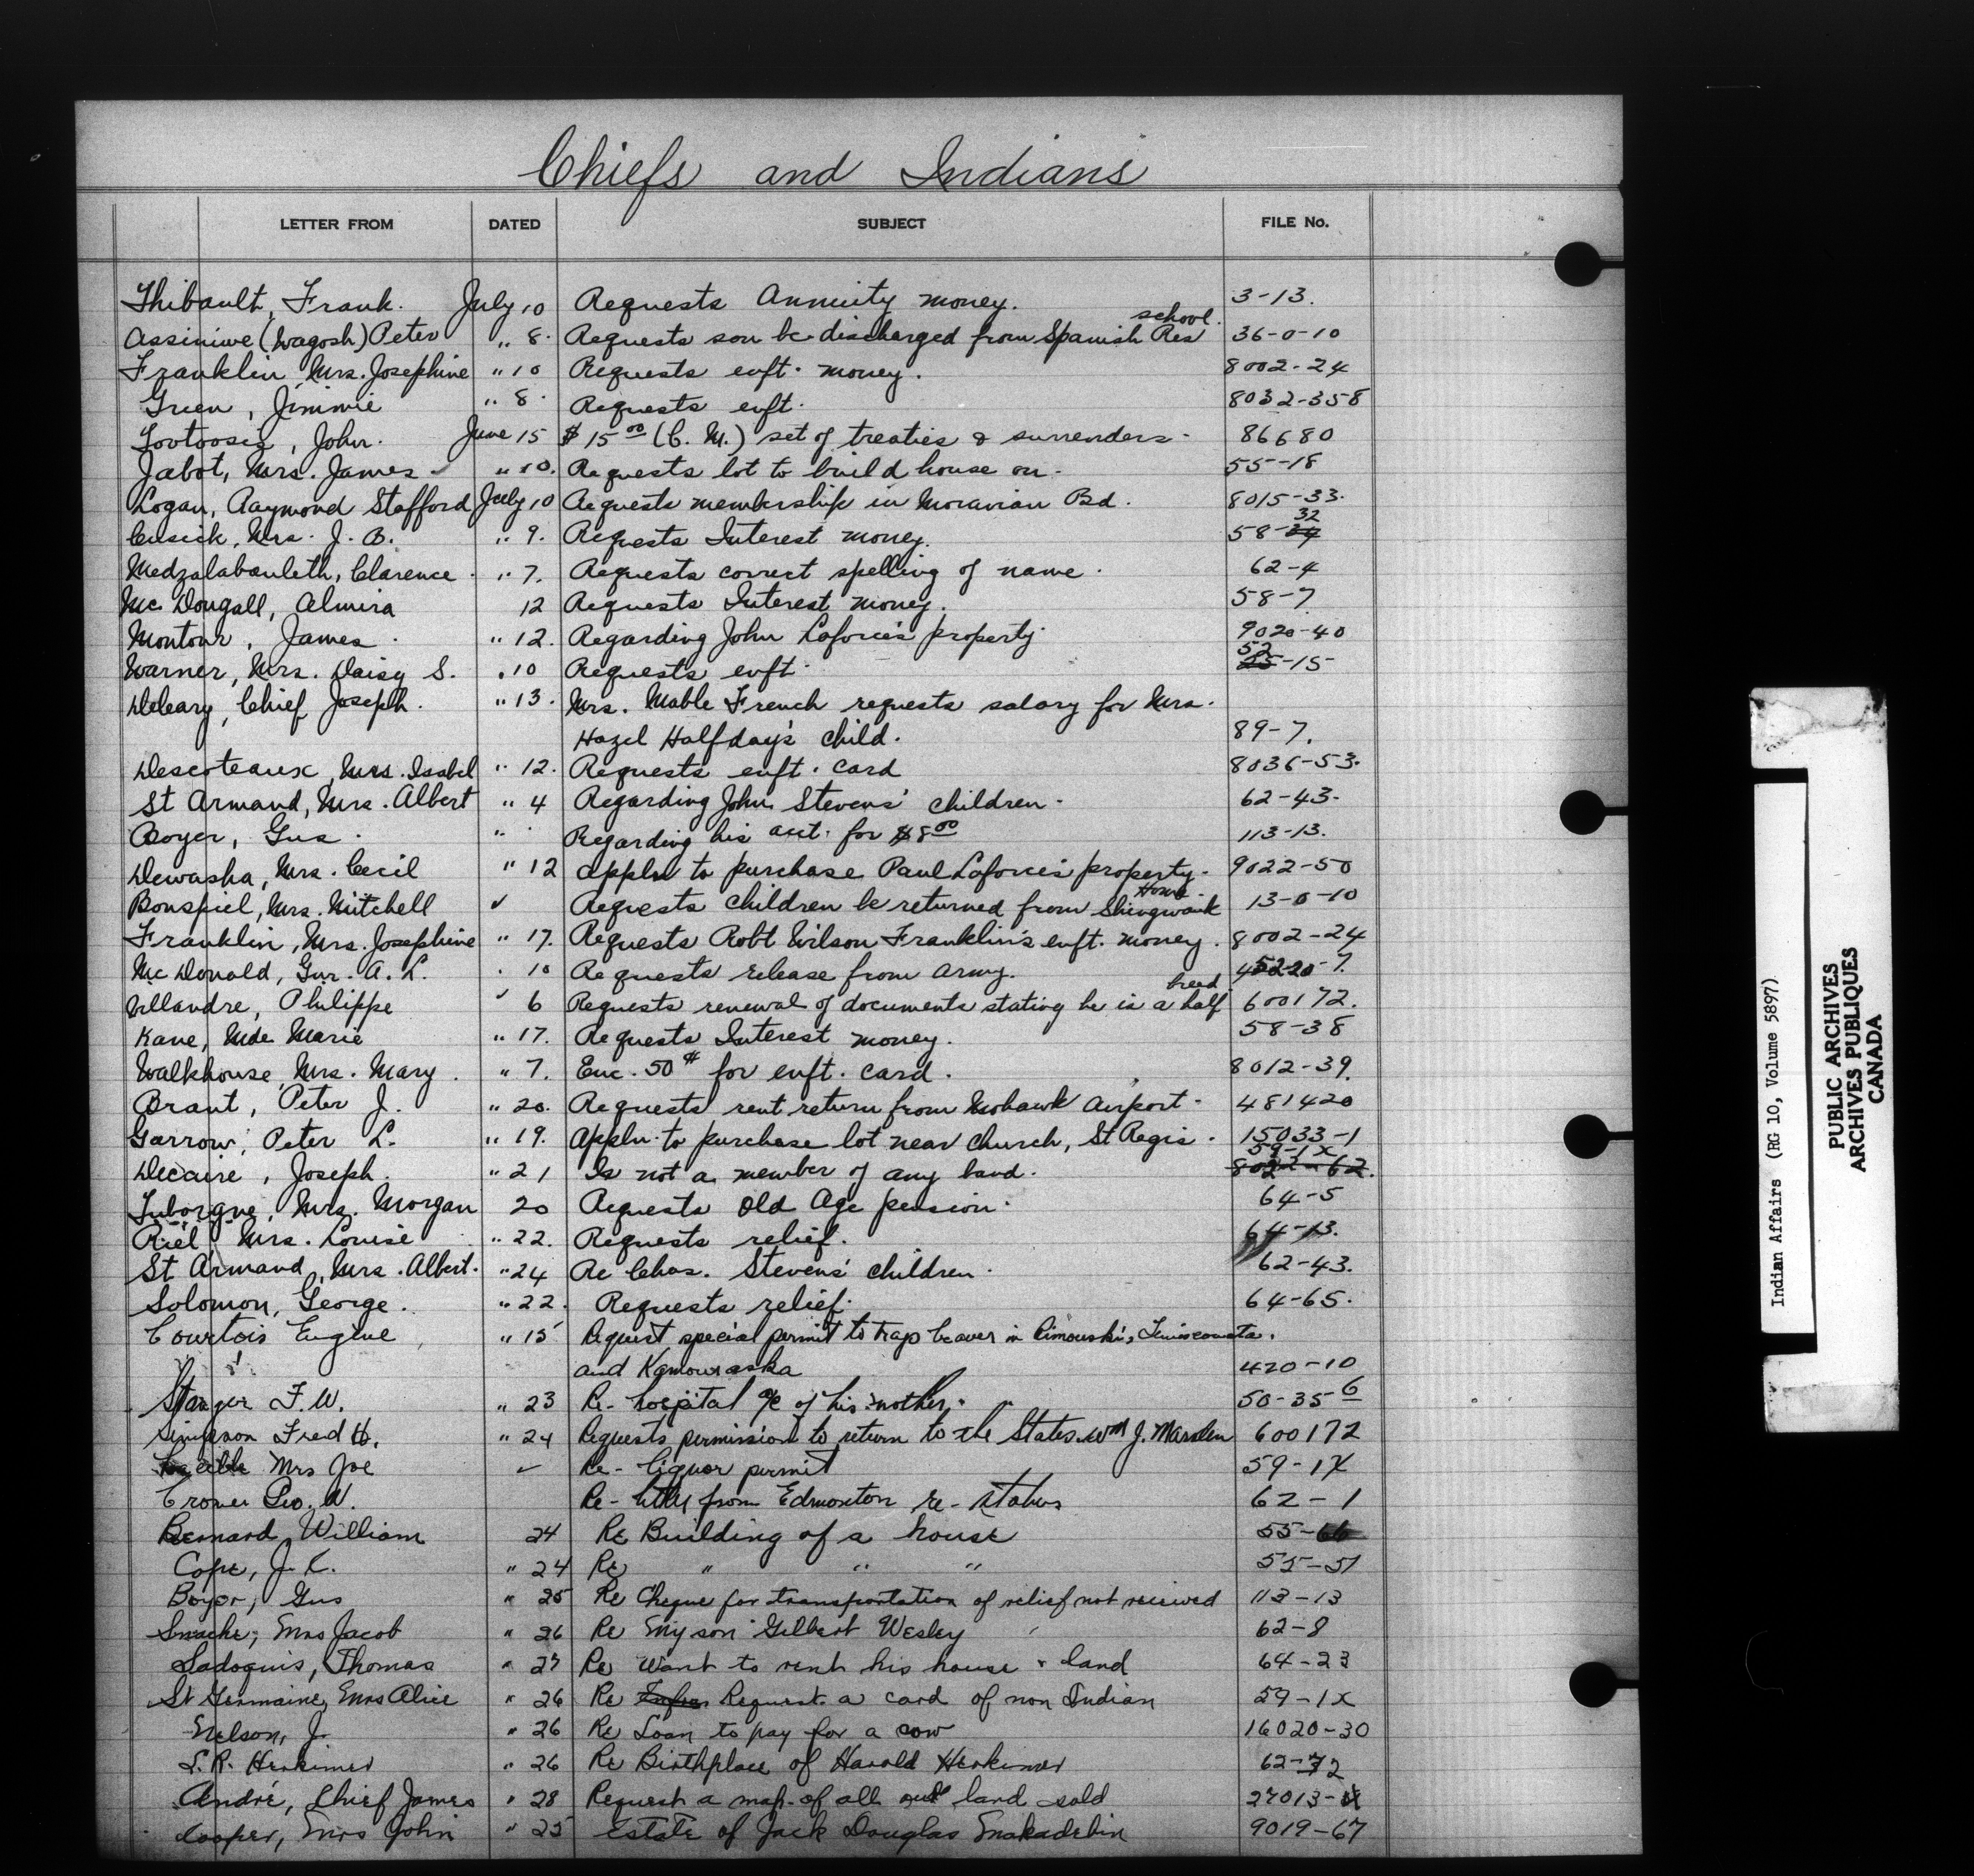 Chiefs and Indians
LETTER FROM DATED SUBJECT FILE No.
Thibault, Frank. July 10 Requests Annuity money. 3-13.
Assiniwe (Wagosh) Peter " 8. Requests son be discharged from Spanish Res school. 36-0-10
Franklin, Mrs. Josephine " 10 Requests enft. money. 8002-24
Green, Jimmie " 8. Requests enft. 8032-358
Tootoosis, John. June 15 $15 00 (C. M.) set of treaties & surrenders. 86680
Jabot, Mrs. James " 10. Requests lot to build house on. 55-18
Logan, Raymond Stafford July 10 Requests membership in Moravian Bd. 8015-33.
Cusick, Mrs. J. B. " 9. Requests Interest money. 58-32
Medzalabanleth, Clarence " 7. Requests correct spelling of name. 62-4
Mc Dougall, Almira 12 Requests Interest money. 58-7
Montour, James. " 12. Regarding John Laforce's property 9020-40
Warner, Mrs. Daisy S. " 10 Requests enft. 52-15
Deleary, Chief Joseph. " 13. Mrs. Mable French requests salary for Mrs.
Hazel Halfday's child. 89-7.
Descoteaux, Mrs. Isabel " 12. Requests enft. card 8036-53.
St Armand, Mrs. Albert " 4 Regarding John Stevens' children. 62-43.
Boyer, Gus. " Regarding his acct. for $8 00 113-13.
Dewasha, Mrs. Cecil " 12 Appln to purchase Paul Laforce's property. 9022-50
Bonspiel, Mrs. Mitchell ✓ Requests children be returned from Shingwauk Home. 13-0-10
Franklin, Mrs. Josephine " 17. Requests Robt Wilson Franklin's enft. money. 8002-24
Mc Donald, Gnr. A. L. " 10 Requests release from army.
Villandre, Philippe " 6 Requests renewal of documents stating he is a half breed 600172.
Kane, Mde Marie " 17. Requests Interest money. 58-38
Walkhouse, Mrs. Mary. " 7. Enc. 50¢ for enft. card. 8012-39.
Brant, Peter J. " 20. Requests rent return from Mohawk Airport. 481420
Garrow, Peter L. " 19. Appln. to purchase lot near church, St Regis. 15033-1
Decaire, Joseph. " 21 Is not a member of any band. 59-1X 8022-62.
Mrs. Morgan 20 Requests Old Age pension. 64-5
Riel, Mrs. Louise " 22. Requests relief. 64-13.
St Armand, Mrs. Albert. " 24 Re Chas. Stevens' children. 62-43.
Solomon, George. " 22. Requests relief. 64-65.
Courtois Eugène " 15 Request special permit to trap beaver in Rimouski, Temiscouata.
and Kamouraska 420-10
Stanger F. W. " 23 Re- hospital a/c of his mother. 50-35-6
Simpson Fred H. " 24 Requests permission to return to the States Wm J. Marsden 600172
Mrs Joe ✓ Re- liquor permit 59-1X
Crower Geo. W. Re- from Edmonton re- status 62-1
Bernard, William 24 Re Building of a house 55-66
Cope, J. L. " 24 Re " " " 55-51
Boyer, Gus " 25 Re Cheque for transportation of relief not received 113-13
Snache, Mrs Jacob " 26 Re My son Gilbert Wesley 62-8
Sadoquis, Thomas " 27 Re Want to rent his house & land 64-23
St Germaine, Mrs Alice " 26 Re Request a card of non Indian 59-1X
Nelson, J. " 26 Re Loan to pay for a cow 16020-30
L. R. Herkimer " 26 Re Birthplace of Harold Herkimer 62-32
André, Chief James " 28 Request a map of all land sold 27013-
Cooper, Mrs John " 25 Estate of Jack Douglas Snakadebin 9019-67
Indian Affairs (RG 10, Volume 5897)
PUBLIC ARCHIVES
ARCHIVES PUBLIQUES
CANADA